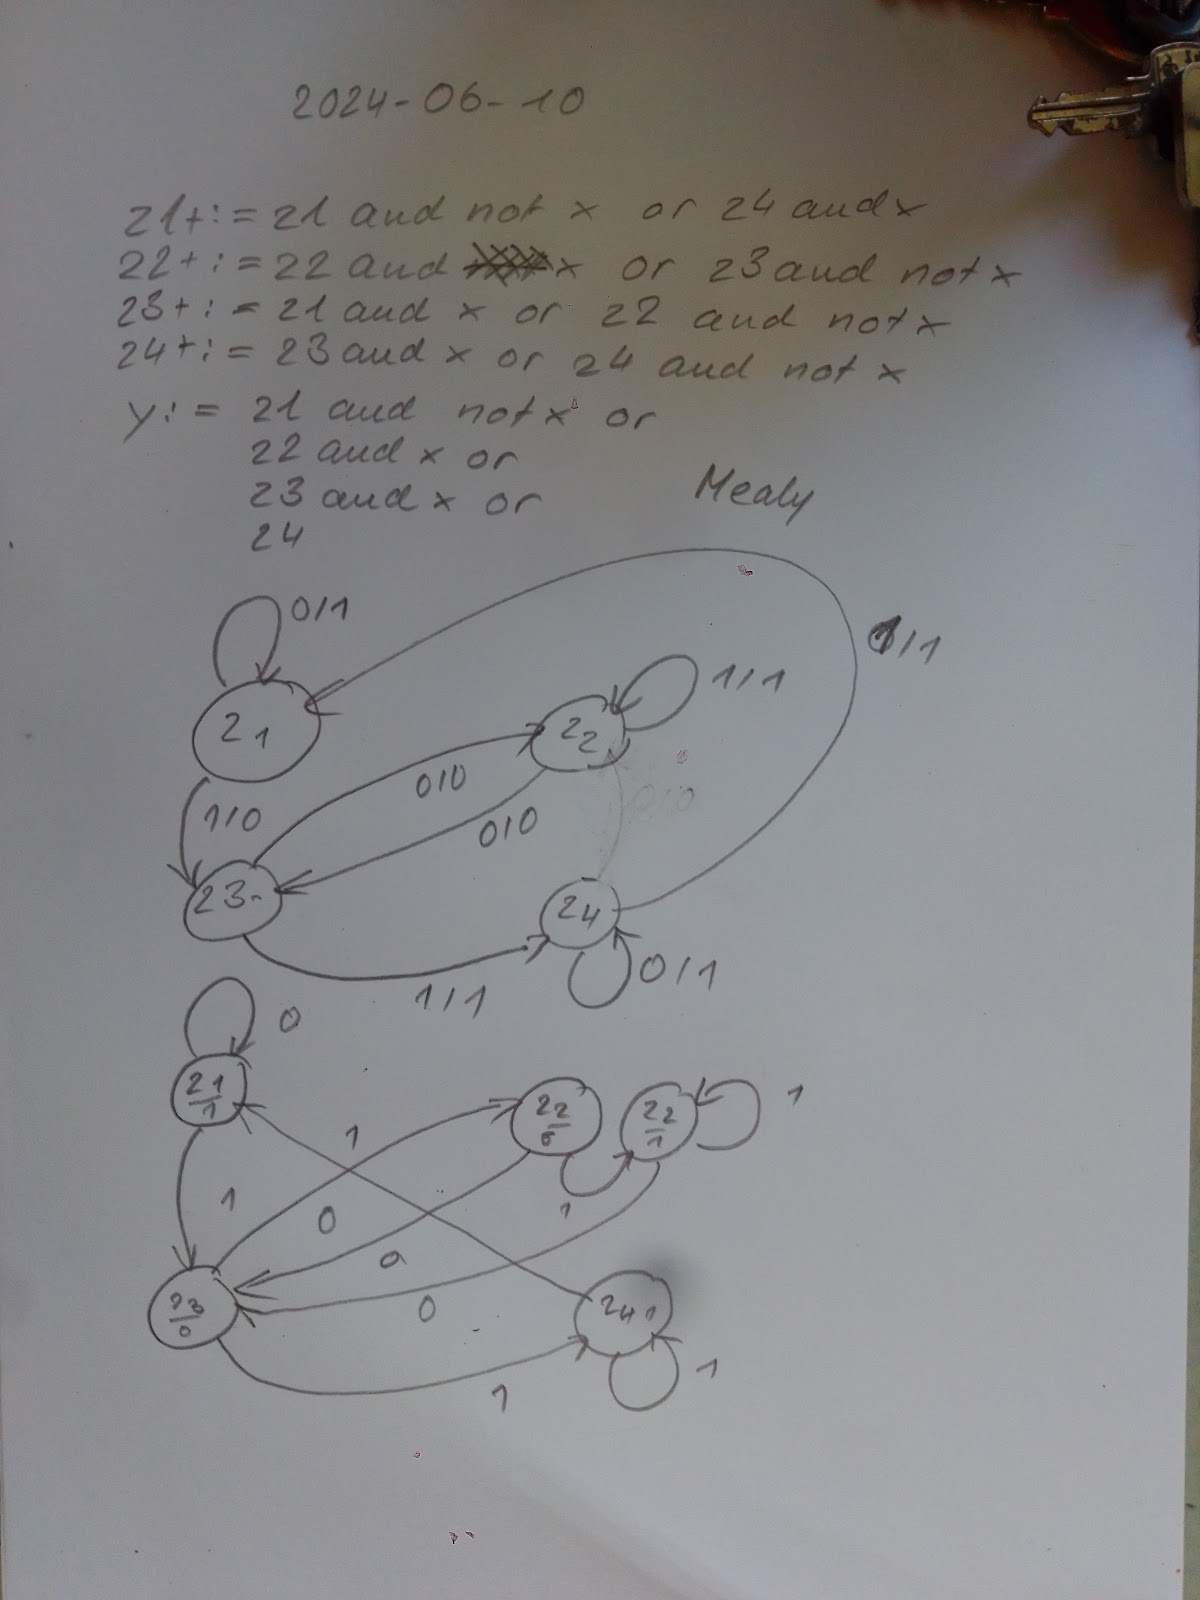 2024-06-10
z1+:= z1 and not x or z4 and x
z2+:= z2 and x or z3 and not x
z3+:= z1 and x or z2 and not x
z4+:= z3 and x or z4 and not x
y:= z1 and not x or
z2 and x or
z3 and x or
z4
Mealy
0/1
1/1
1/1
z1
z2
0/0
0/0
1/0
0/0
z3
z4
0/1
1/1
0
z1/1
z2/0
z2/1
1
1
1
0
1
0
0
z3/0
z4 1
1
1